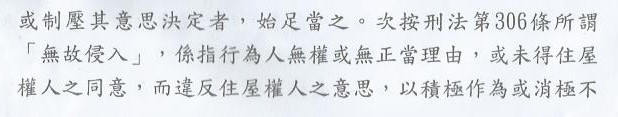 或制壓其意思決定者，始足當之。次按刑法第306條所謂
「無故侵入」，係指行為人無權或無正當理由，或未得住屋
權人之同意，而違反住屋權人之意思，以積極作為或消極不